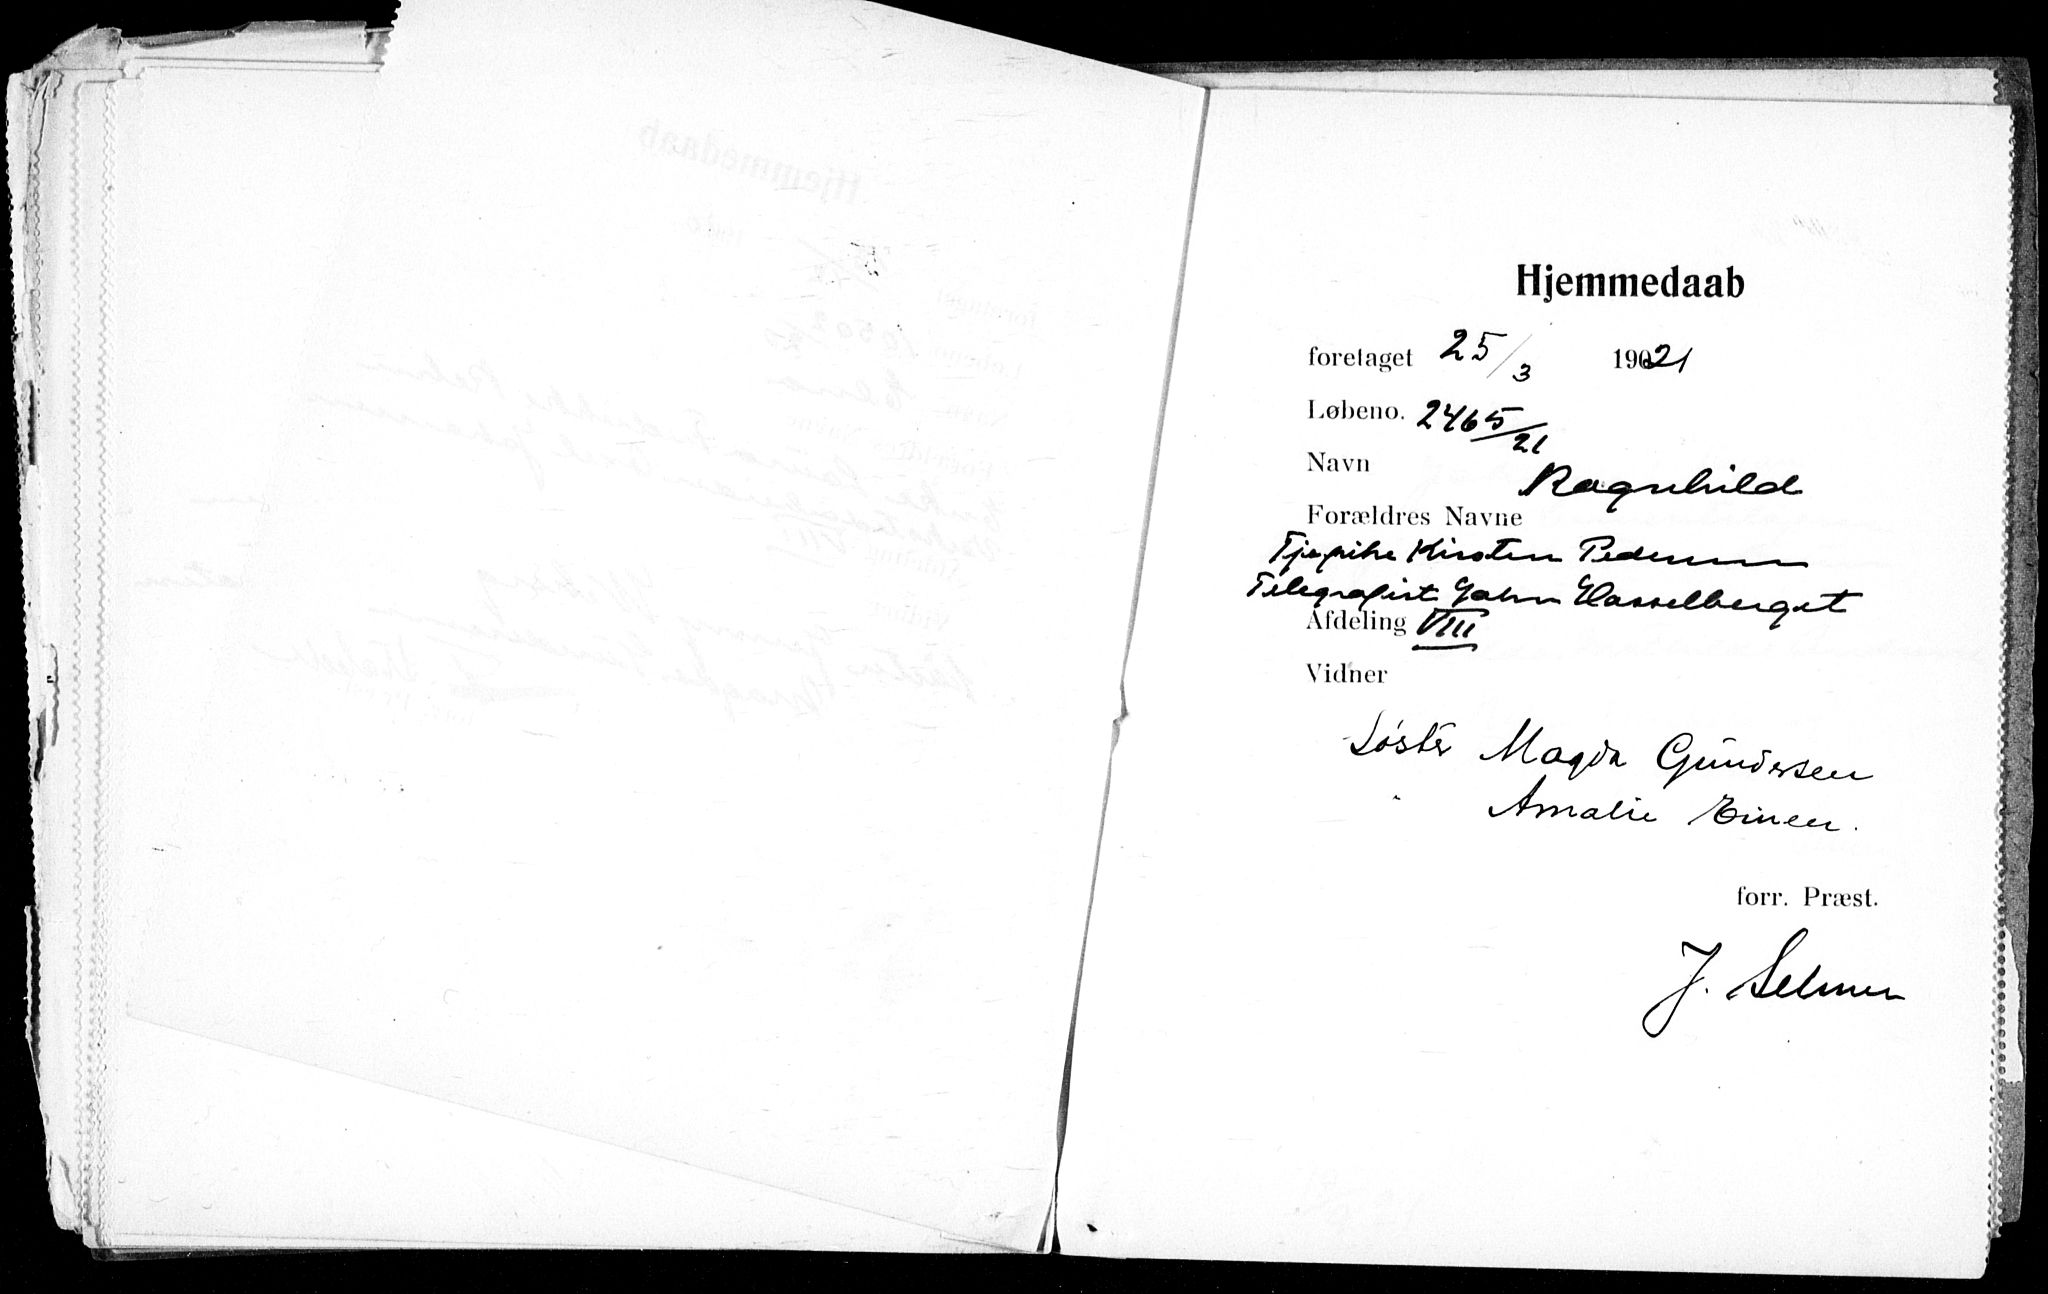 Hjemmedaab
foretaget 25/3 1921
Løbeno. 2465/21
Navn Ragnhild
Forældres Navne
Tjepike Kirsten Pedersen
Telegrafist John Hasselberget
Afdeling VIII
Vidner
Søster Magda Gundersen
Amalie
forr. Præst.
J. Selmer